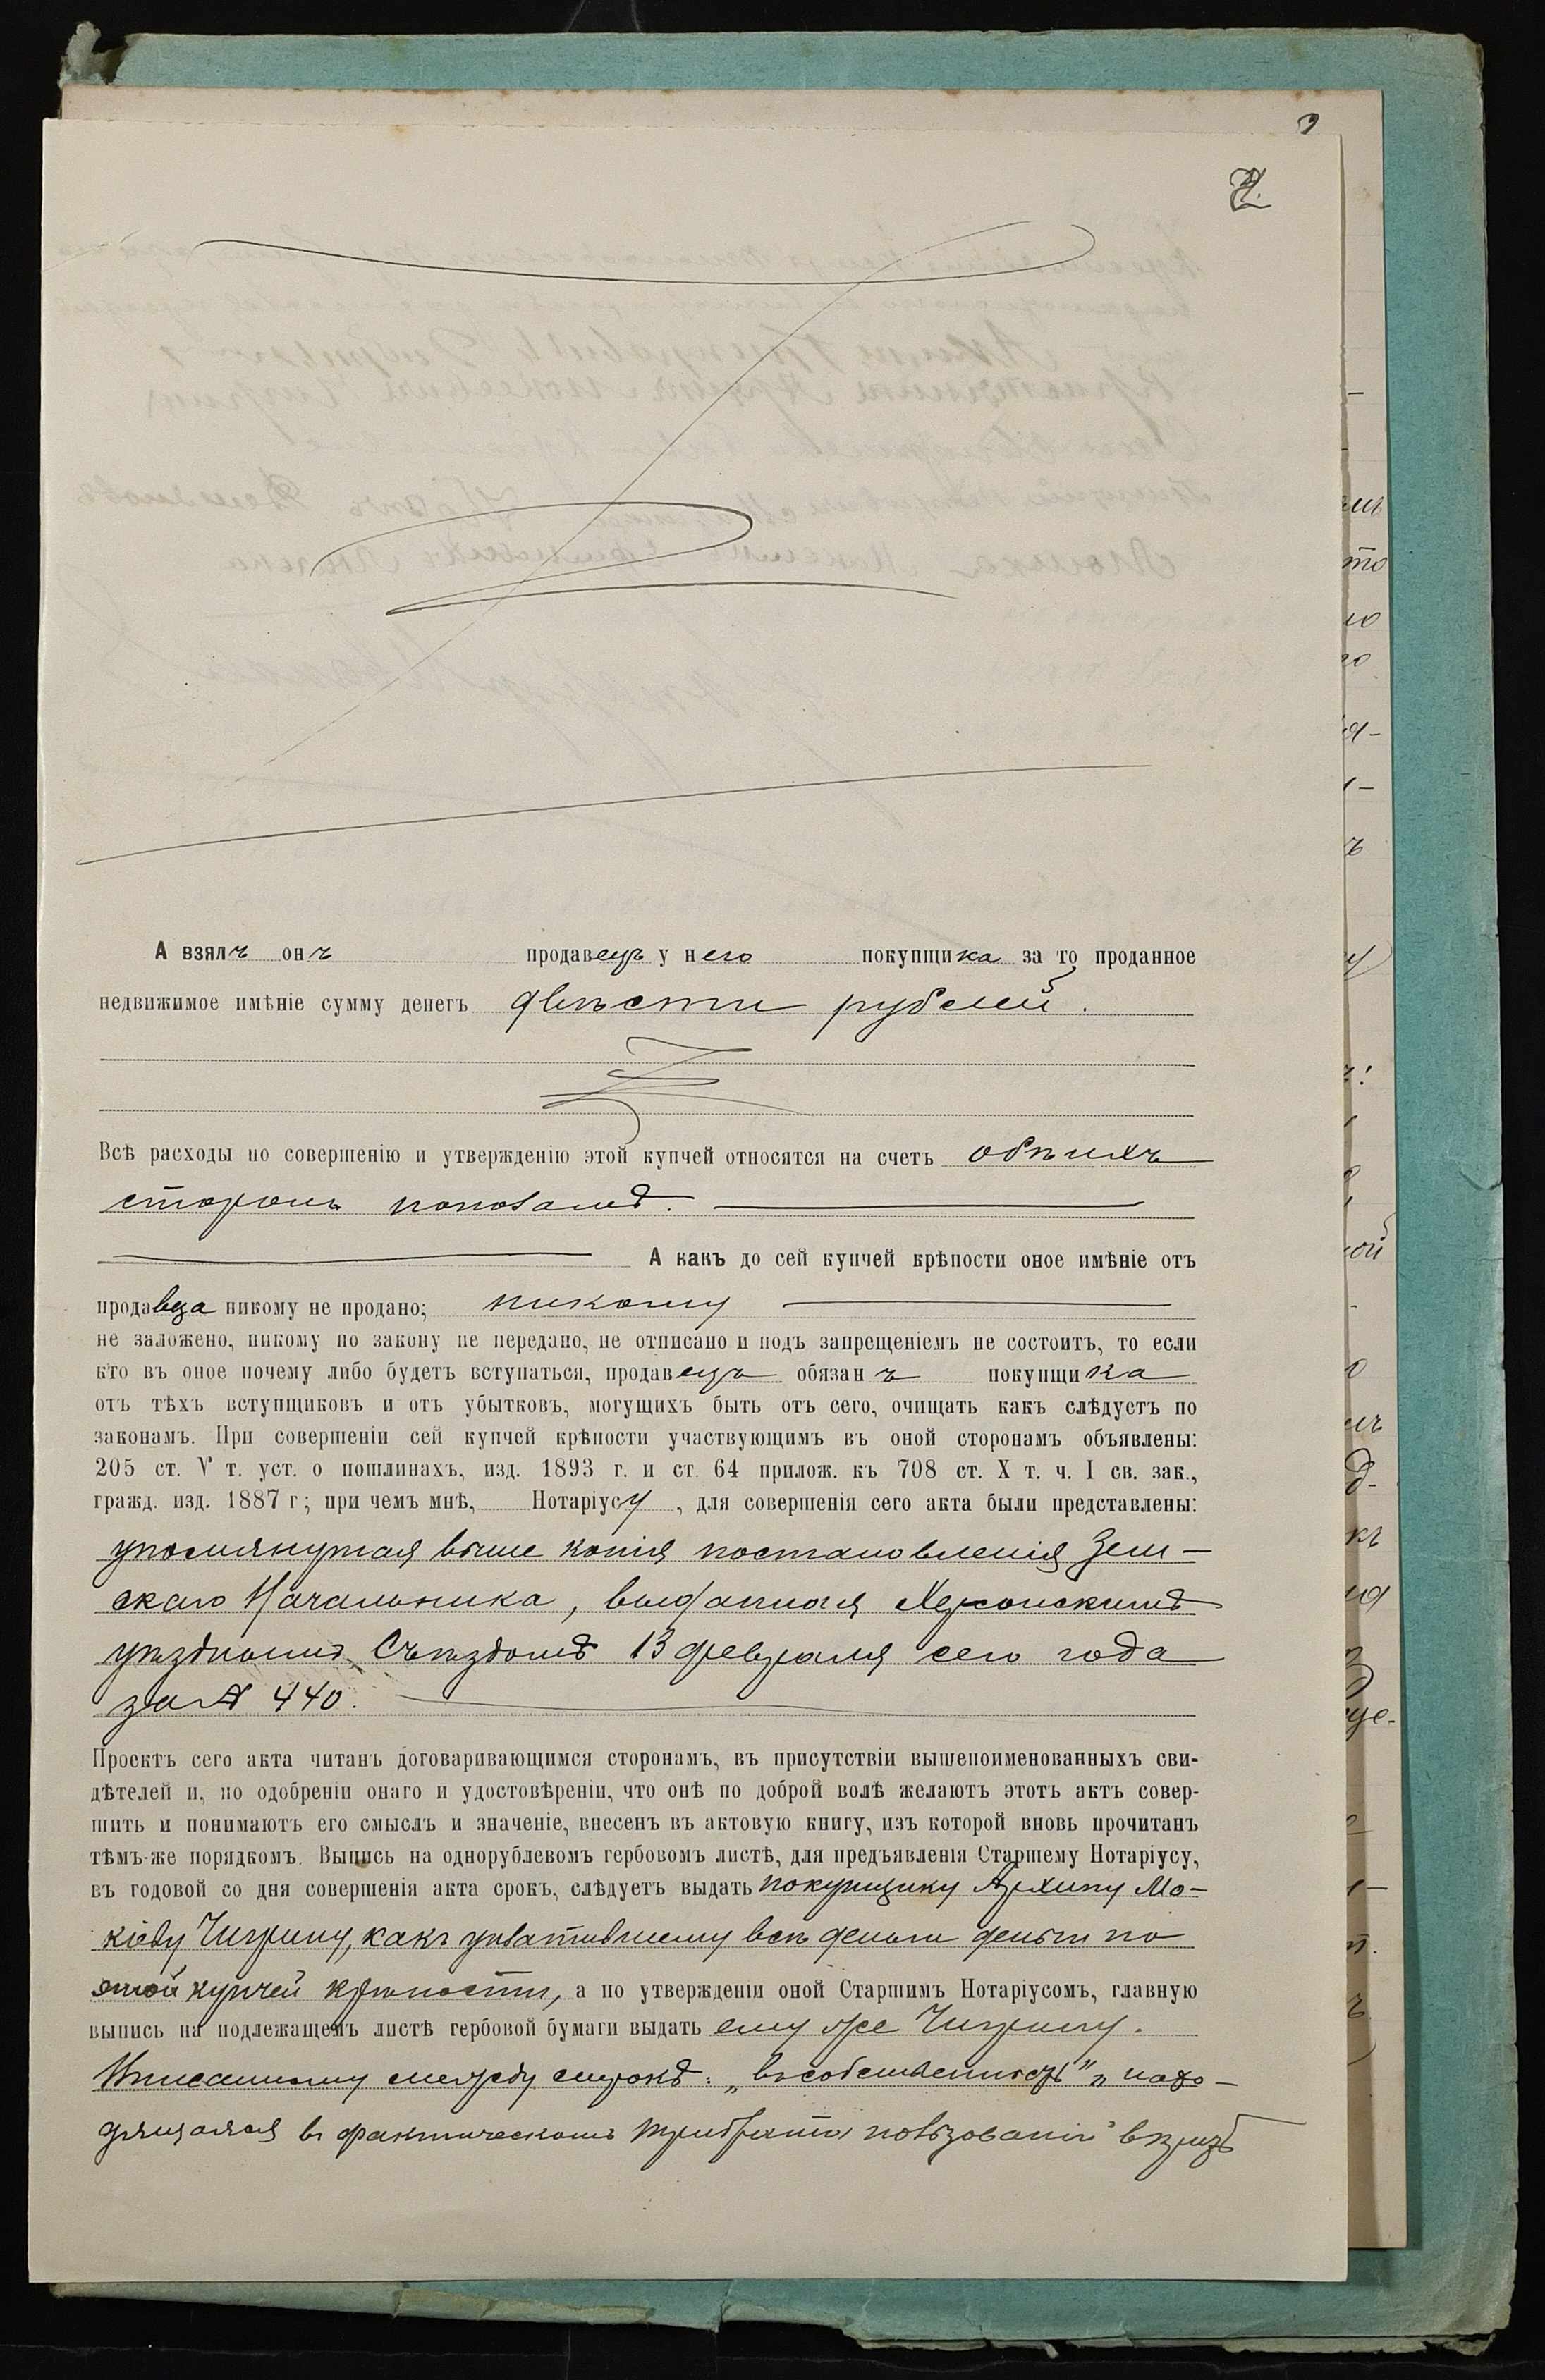 2.
А взялъ онъ продавецъ у него покупщика за то проданное
недвижимое имѣніе сумму денегъ двѣсти рублей.
Всѣ расходы по совершенію и утвержденію этой купчей относятся на счетъ обѣихъ
сторонъ пополамъ.
А какъ до сей купчей крѣпости оное имѣніе отъ
продавца никому не продано; никому
не заложено, никому по закону не передано, не отписано и подъ запрещеніемъ не состоитъ, то если
кто въ оное почему либо будетъ вступаться, продавецъ обязанъ покупщика
отъ тѣхъ вступщиковъ и отъ убытковъ, могущихъ быть отъ сего, очищать какъ слѣдуетъ по
законамъ. При совершеніи сей купчей крѣпости участвующимъ въ оной сторонамъ объявлены:
205 ст. V т. уст. о пошлинахъ, изд. 1893 г. и ст. 64 прилож. къ 708 ст. X т. ч. I св. зак.,
гражд. изд. 1887 г; при чемъ мнѣ, Нотаріусу, для совершенія сего акта были представлены:
упомянутая выше копія постановленія Зем-
скаго Начальника, выданная Херсонскимъ
уѣзднымъ Съѣздомъ 13 февраля сего года
за № 440.
Проектъ сего акта читанъ договаривающимся сторонамъ, въ присутствіи вышепоименованныхъ сви-
дѣтелей и, по одобреніи онаго и удостовѣреніи, что онѣ по доброй волѣ желаютъ этотъ актъ совер-
шить и понимаютъ его смыслъ и значеніе, внесенъ въ актовую книгу, изъ которой вновь прочитанъ
тѣмъ-же порядкомъ. Выпись на однорублевомъ гербовомъ листѣ, для предъявленія Старшему Нотаріусу,
въ годовой со дня совершенія акта срокъ, слѣдуетъ выдать покупщику Архипу Мо-
кіеву Чигрину, какъ уплатившему всѣ деньги деньги по
этой купчей крѣпости, а по утвержденіи оной Старшимъ Нотаріусомъ, главную
выпись на подлежащемъ листѣ гербовой бумаги выдать ему же Чигрину.
Вписанному между строкъ: „въ собственность" „ нахо-
дящаяся въ фактическомъ пользованіи" вѣрить